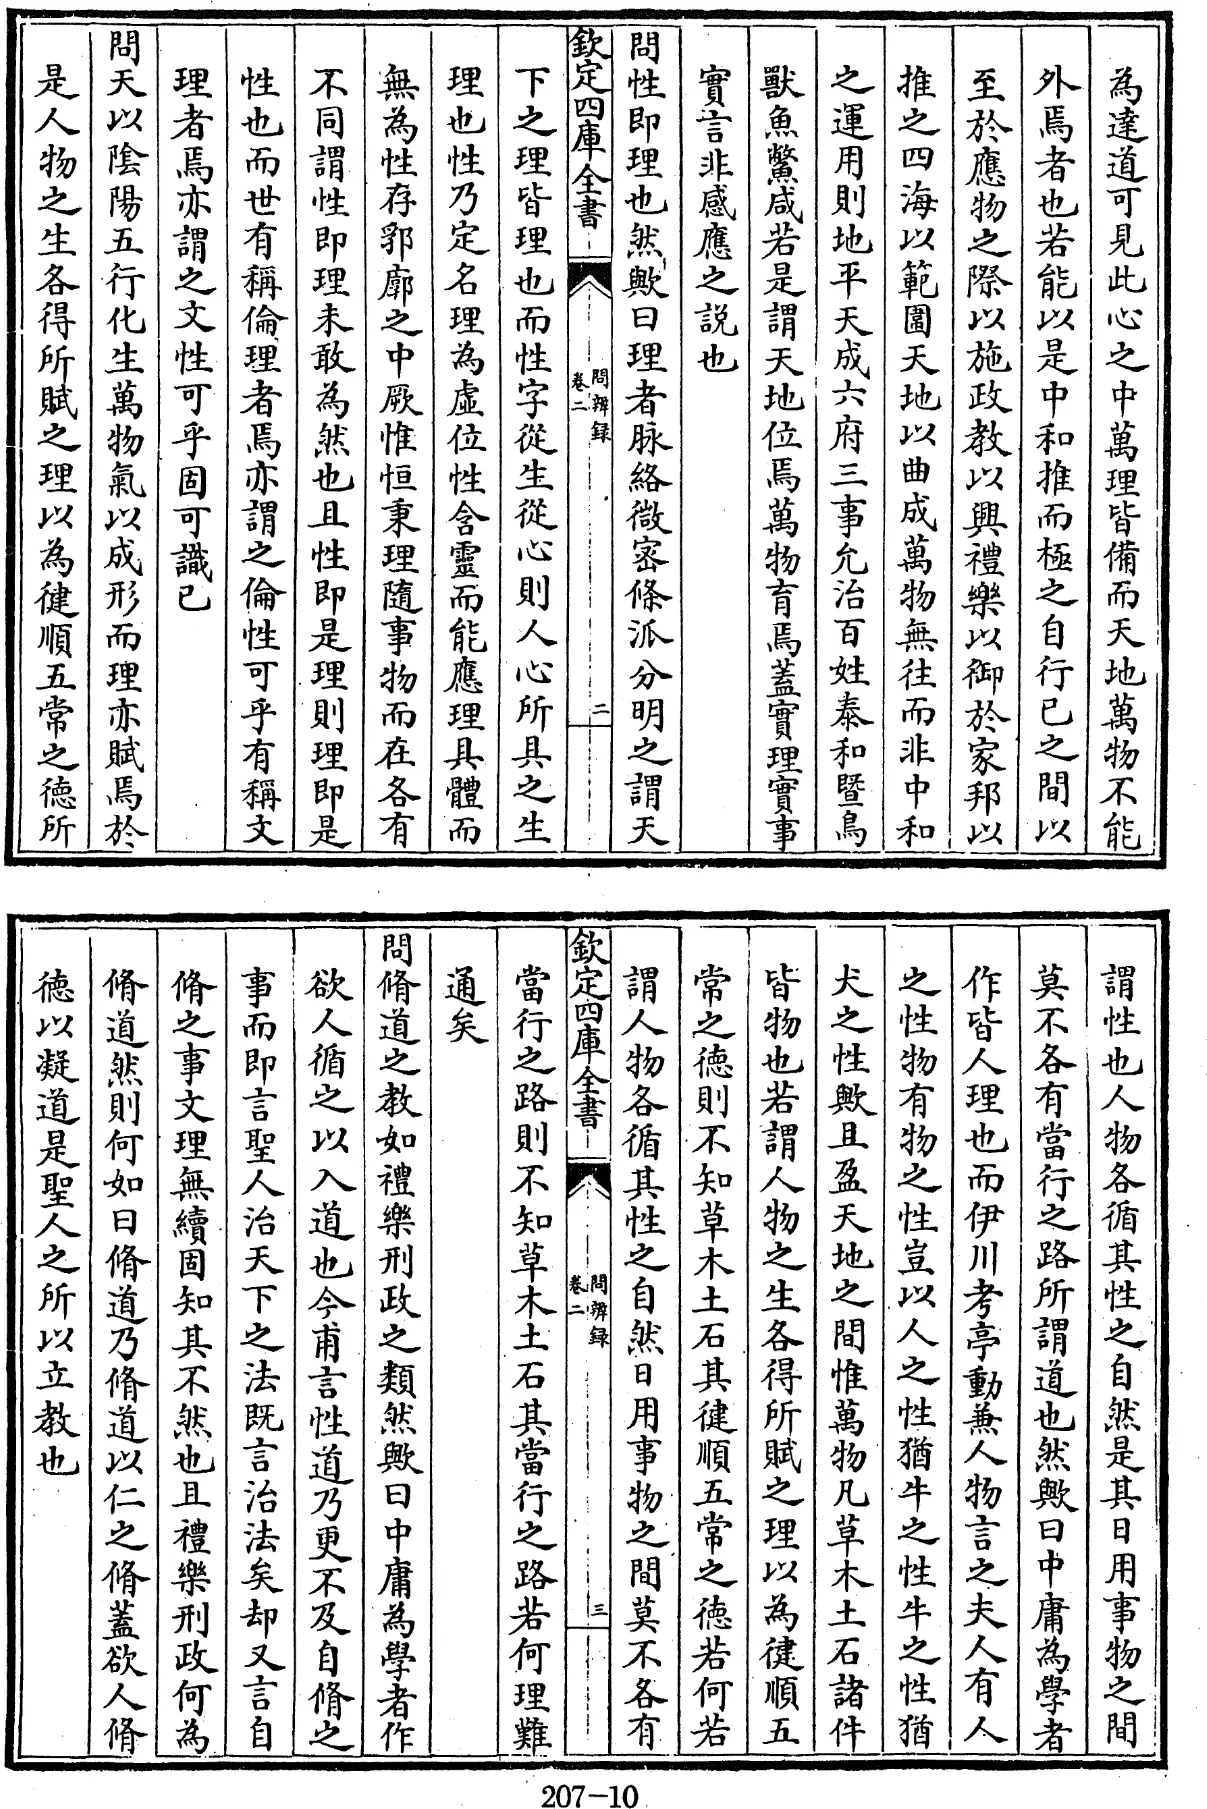 為達道可見此心之中萬理皆備而天地萬物不能
外焉者也若能以是中和推而極之自行已之間以
至於應物之際以施政教以興禮樂以御於家邦以
推之四海以範圍天地以曲成萬物無往而非中和
之運用則地平天成六府三事允治百姓泰和暨鳥
獸魚鱉咸若是謂天地位焉萬物育焉蓋實理實事
實言非感應之説也
問性即理也然歟曰理者脉絡微密條派分明之謂天
欽定四庫全書
問辨録
卷二
二
下之理皆理也而性字從生從心則人心所具之生
理也性乃定名理為虛位性含靈而能應理具體而
無為性存郛廓之中厥惟恒秉理隨事物而在各有
不同謂性即理未敢為然也且性即是理則理即是
性也而世有稱倫理者焉亦謂之倫性可乎有稱文
理者焉亦謂之文性可乎固可識已
問天以陰陽五行化生萬物氣以成形而理亦賦焉於
是人物之生各得所賦之理以為健順五常之德所
謂性也人物各循其性之自然是其日用事物之間
莫不各有當行之路所謂道也然歟曰中庸為學者
作皆人理也而伊川考亭動兼人物言之夫人有人
之性物有物之性豈以人之性猶牛之性牛之性猶
犬之性歟且盈天地之間惟萬物凡草木土石諸件
皆物也若謂人物之生各得所賦之理以為健順五
常之德則不知草木土石其健順五常之德若何若
謂人物各循其性之自然日用事物之間莫不各有
欽定四庫全書
問辨録
卷二
三
當行之路則不知草木土石其當行之路若何理難
通矣
問脩道之教如禮樂刑政之類然歟曰中庸為學者作
欲人循之以入道也今甫言性道乃更不及自脩之
事而即言聖人治天下之法既言治法矣却又言自
脩之事文理無續固知其不然也且禮樂刑政何為
脩道然則何如曰脩道乃脩道以仁之脩蓋欲人脩
德以凝道是聖人之所以立教也
207-10